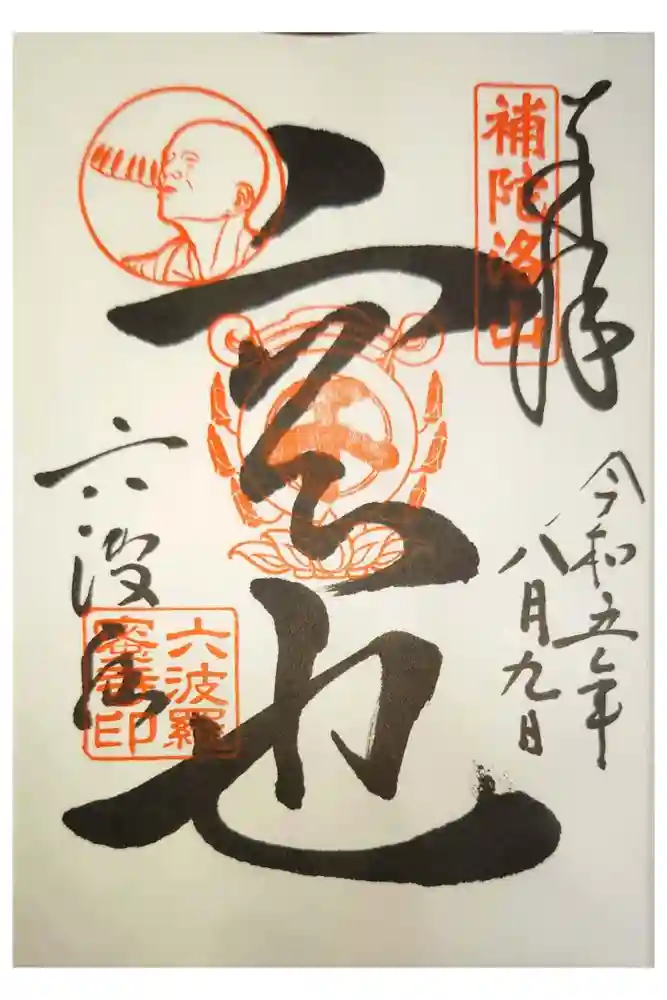 奉拝
補陀洛山
令和五年
八月九日
空也
六波羅
六波羅
蜜寺印